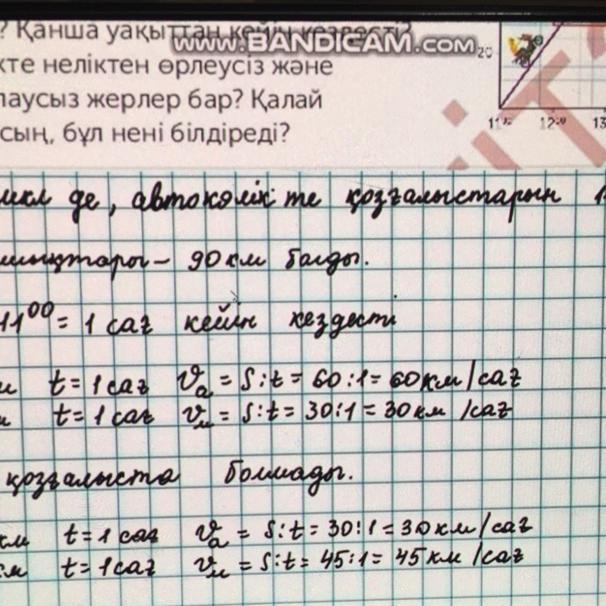 ? Қанша уақыттан кейін кездесті?
www.BANDICAM.com
20
кте неліктен өрлеусіз және
лаусыз жерлер бар? Қалай
сың, бұл нені білдіреді?
11⁰⁰ 12⁰⁰ 13
икл де, автокөлік те қозғалыстарын 1
90 км болды.
11⁰⁰ = 1 сағ кейін кездесті
м t = 1 сағ Vₐ = S:t = 60:1 = 60 км/сағ
м t = 1 сағ Vм = S:t = 30:1 = 30 км/сағ
қозғалыста болмады.
км t = 1 сағ Vₐ = S:t = 30:1 = 30 км/сағ
км t = 1 сағ Vм = S:t = 45:1 = 45 км/сағ